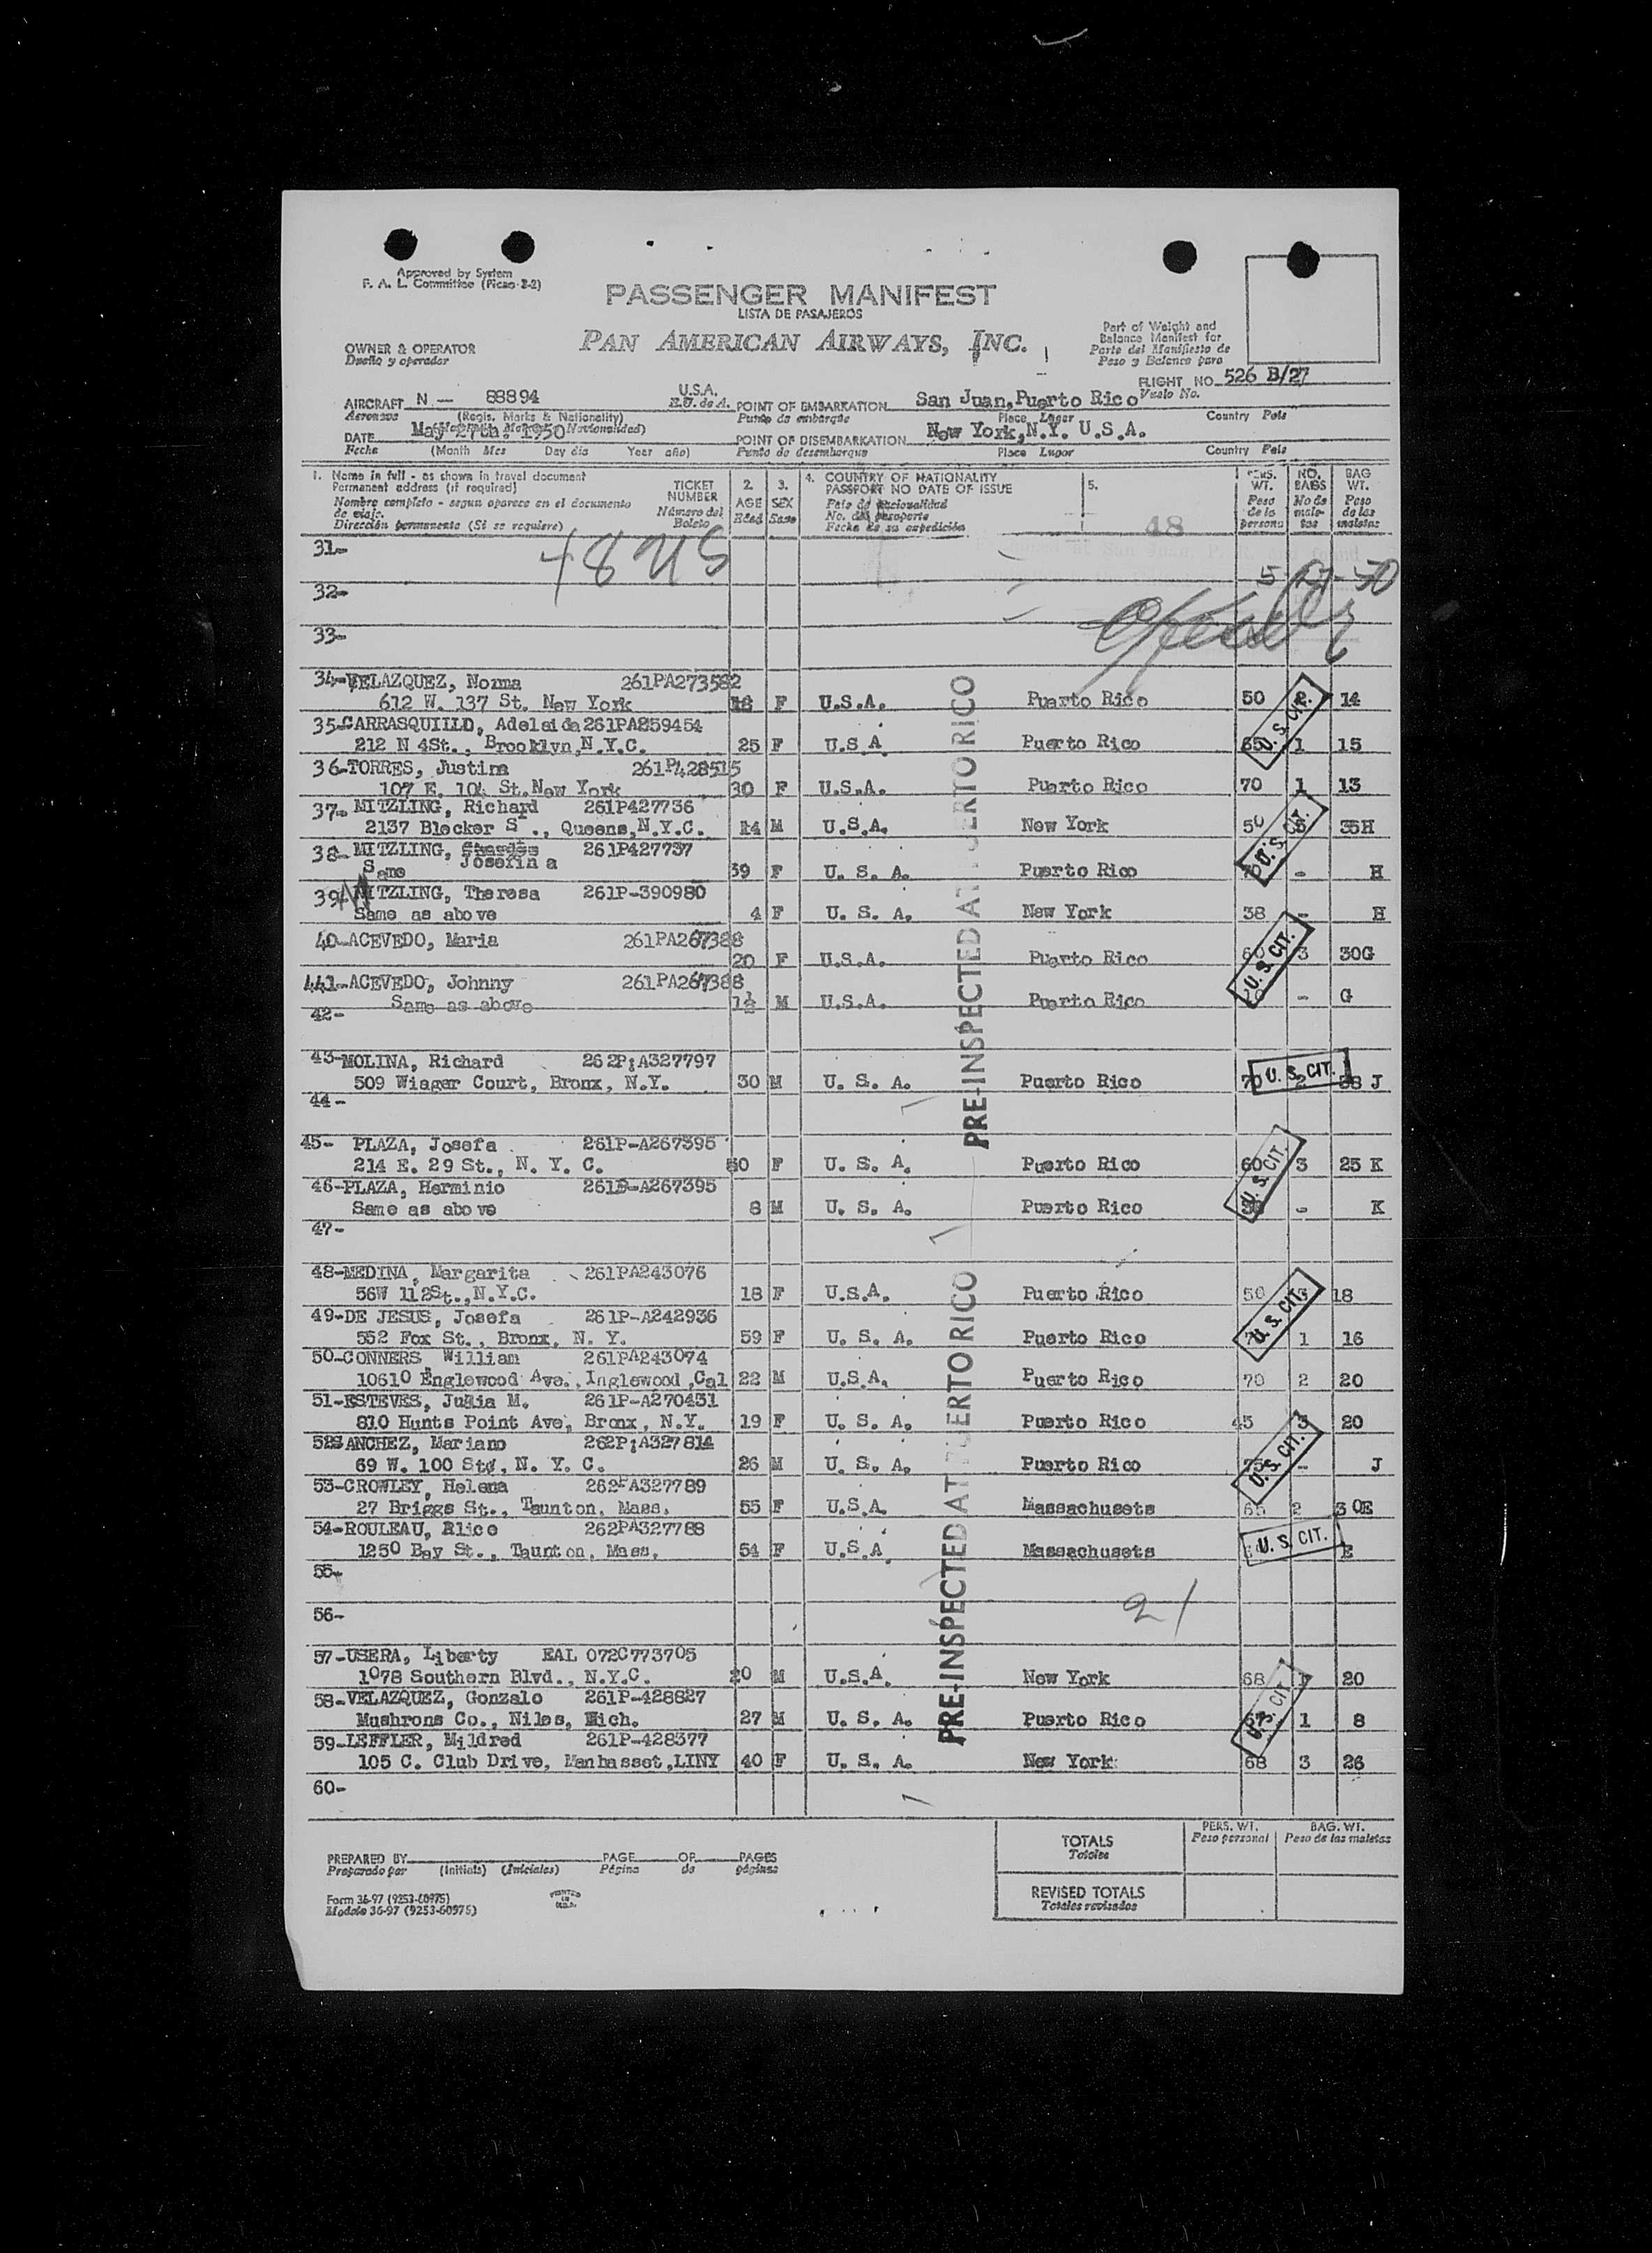 Approved by System
F. A. L. Committee (Picao-2-2)
PASSENGER MANIFEST
LISTA DE PASAJEROS
PAN AMERICAN AIRWAYS, INC.
Part of Weight and
Balance Manifest for
Parte del Manifiesto de
Peso y Balance para
OWNER & OPERATOR
Dueño y operador
FLIGHT NO. 526 B/27
Vuelo No.
AIRCRAFT N - 88894 U.S.A.
Aeronave (Regis. Marks & Nationality) E.U. de A.
POINT OF EMBARKATION San Juan, Puerto Rico
Punto de embarque Place Lugar Country País
DATE May 27th. 1950
Fecha (Month Mes Day día Year año)
POINT OF DISEMBARKATION New York, N.Y. U.S.A.
Punto de desembarque Place Lugar Country País
1. Name in full - as shown in travel document
Permanent address (if required)
Nombre completo - segun aparece en el documento
de viaje.
Dirección permanente (Si se requiere)
TICKET
NUMBER
Número del
Boleto
2.
AGE
Edad
3.
SEX
Sexo
4. COUNTRY OF NATIONALITY
PASSPORT NO DATE OF ISSUE
País de nacionalidad
No. del pasaporte
Fecha de su expedición
5.
PERS.
WT.
Peso
de la
persona
NO.
BAGS
No de
male-
tas
BAG
WT.
Peso
de las
maletas
48
31-
5-27-50
32-
33-
34-VELAZQUEZ, Norma 261PA273582
612 W. 137 St. New York 18 F U.S.A. Puerto Rico 50 2 14
35-CARRASQUILLO, Adelaida 261PA259454
212 N 4St., Brooklyn, N.Y.C. 25 F U.S.A Puerto Rico 1 15
36-TORRES, Justina 261P428515
107 E. 104 St. New York 30 F U.S.A. Puerto Rico 70 1 13
37- MITZLING, Richard 261P427736
2137 Blecker S ., Queens, N.Y.C. 14 M U.S.A. New York 50 35H
38-MITZLING, 261P427737
Same Josefina 39 F U. S. A. Puerto Rico - H
39-MITZLING, Theresa 261P-390980
Same as above 4 F U. S. A. New York 38 - H
40-ACEVEDO, Maria 261PA267388
20 F U.S.A. Puerto Rico 3 30G
41-ACEVEDO, Johnny 261PA267388
Same as above 1½ M U.S.A. Puerto Rico - G
42-
43-MOLINA, Richard 262P:A327797
509 Wiager Court, Bronx, N.Y. 30 M U. S. A. Puerto Rico 70 2 38 J
44-
45- PLAZA, Josefa 261P-A267395
214 E. 29 St., N. Y. C. 50 F U. S. A. Puerto Rico 60 3 25 K
46-PLAZA, Herminio 261P-A267395
Same as above 8 M U. S. A. Puerto Rico - K
47-
48-MEDINA, Margarita 261PA243076
56W 112St., N.Y.C. 18 F U.S.A. Puerto Rico 50 3 18
49-DE JESUS, Josefa 261P-A242936
552 Fox St., Bronx, N. Y. 59 F U. S. A. Puerto Rico 1 16
50-CONNERS, William 261PA243074
10610 Englewood Ave., Inglewood, Cal 22 M U.S.A. Puerto Rico 70 2 20
51-ESTEVES, Julia M. 261P-A270431
810 Hunts Point Ave, Bronx, N.Y. 19 F U. S. A. Puerto Rico 45 3 20
52SANCHEZ, Mariano 262P:A327814
69 W. 100 Std, N. Y. C. 26 M U. S. A. Puerto Rico - J
53-CROWLEY, Helena 262PA327789
27 Briggs St., Taunton, Mass. 55 F U.S.A. Massachusets 65 2 30E
54-ROULEAU, Alice 262PA327788
1250 Bay St., Taunton, Mass. 54 F U.S.A Massachusets E
55-
56-
21
57-USERA, Liberty EAL 072C773705
1078 Southern Blvd., N.Y.C. 20 M U.S.A. New York 68 1 20
58-VELAZQUEZ, Gonzalo 261P-428827
Mushrons Co., Niles, Mich. 27 M U. S. A. Puerto Rico 1 8
59-LEFFLER, Mildred 261P-428377
105 C. Club Drive, Manhasset, LINY 40 F U. S. A. New York 68 3 26
60-
PRE-INSPECTED AT PUERTO RICO
PRE-INSPECTED AT PUERTO RICO
U. S. CIT.
U. S. CIT.
U. S. CIT.
U. S. CIT.
U. S. CIT.
U. S. CIT.
U. S. CIT.
U. S. CIT.
U. S. CIT.
PREPARED BY PAGE OF PAGES
Preparado por (Initials) (Iniciales) Página de páginas
TOTALS
Totales
PERS. WT.
Peso personal
BAG. WT.
Peso de las maletas
REVISED TOTALS
Totales revisados
Form 36-97 (9253-60975)
Modelo 36-97 (9253-60975)
PRINTED
IN
U.S.A.